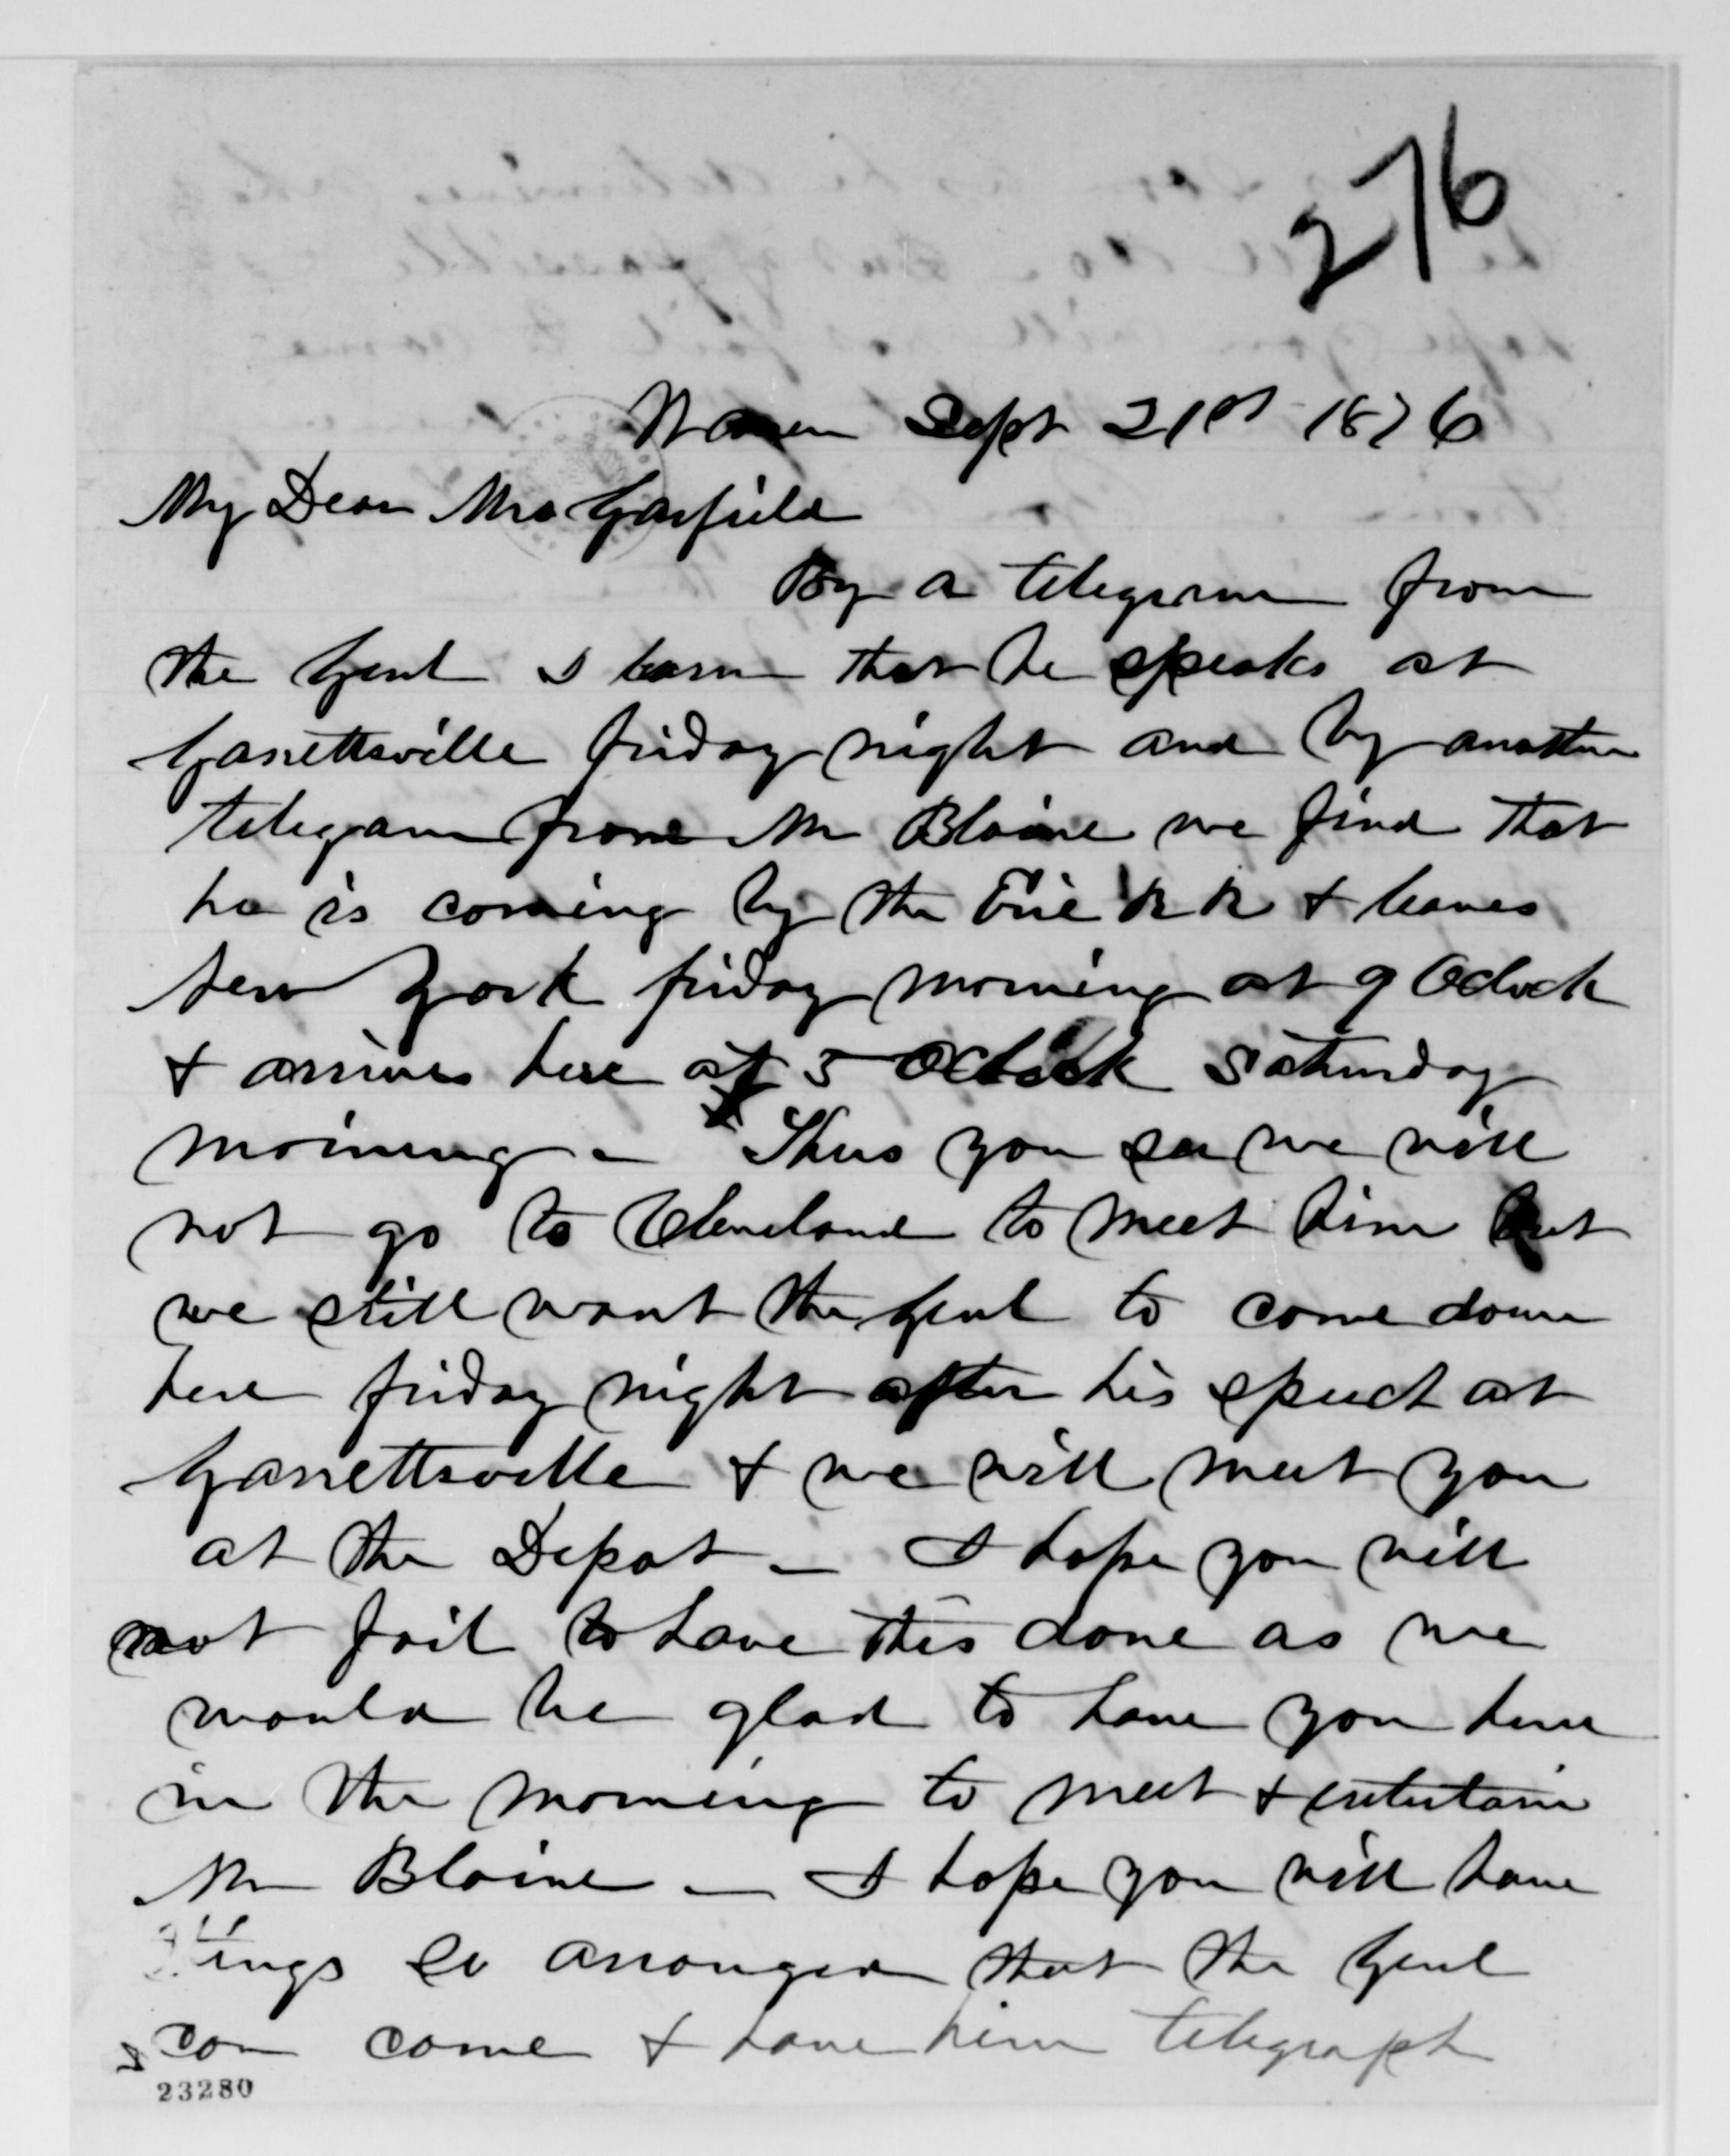 276
Warren Sept 21st 1876
My Dear Mrs Garfield
By a telegram from
the Genl I learn that he speaks at
Garrettsville friday night and by another
telegram from Mr Blaine we find that
he is coming by the Erie R R & leaves
New York friday morning at 9 Oclock
& arrives here at 5 Oclock Saturday
morning - Thus you see we will
not go to Cleveland to meet him but
we still want the Genl to come down
here friday night after his speech at
Garrettsville & we will meet you
at the Depot - I hope you will
not fail to have this done as we
would be glad to have you here
in the morning to meet & entertain
Mr Blaine - I hope you will have
things so arranged that the Genl
can come & have him telegraph
23280